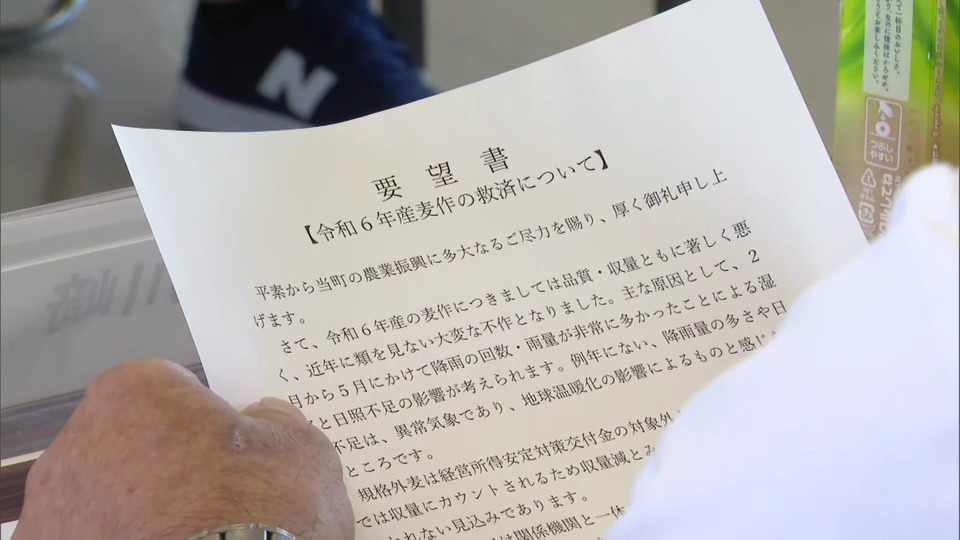 要望書
【令和６年産麦作の救済について】
平素から当町の農業振興に多大なるご尽力を賜り、厚く御礼申し上
げます。
さて、令和６年産の麦作につきましては品質・収量ともに著しく悪
く、近年に類を見ない大変な不作となりました。主な原因として、２
月から５月にかけて降雨の回数・雨量が非常に多かったことによる湿
と日照不足の影響が考えられます。例年にない、降雨量の多さや日
不足は、異常気象であり、地球温暖化の影響によるものと感じ
ところです。
規格外麦は経営所得安定対策交付金の対象外
では収量にカウントされるため収量減とみ
れない見込みであります。
は関係機関と一体
N
つぶし
やすい